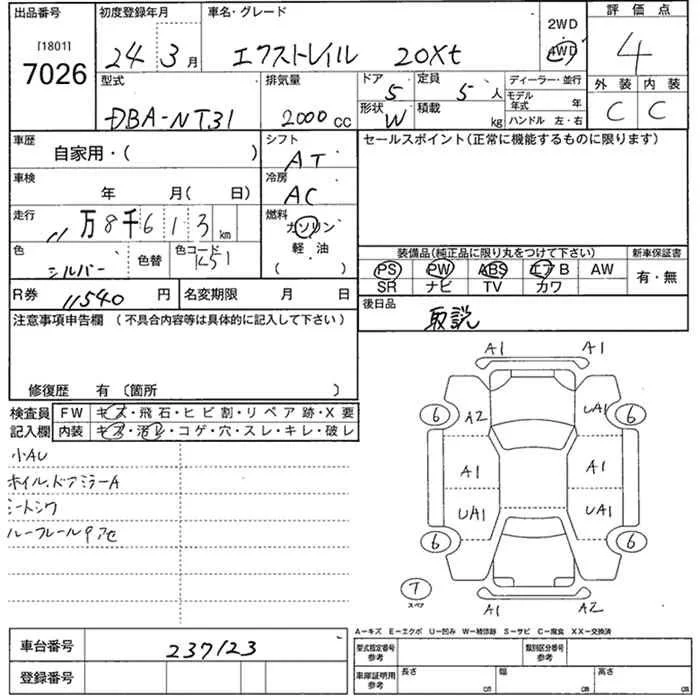 出品番号 初度登録年月 車名・グレード 2WD 評価点
[1801] 4WD
7026 24年 3月 エクストレイル 20Xt 4
型式 排気量 ドア 定員 ディーラー・並行 外装 内装
5 5人 モデル年式 年 C C
DBA-NT31 2000cc 形状 W 積載 kg ハンドル 左・右
車歴 シフト セールスポイント(正常に機能するものに限ります)
自家用・( ) AT
車検 冷房
年 月( 日) AC
走行 燃料
11万8千613km ガソリン
色 色替 色コード 軽・油 装備品(純正品に限り丸をつけて下さい) 新車保証書
シルバー K51 ( ・ ) PS PW ABS エアB AW 有・無
SR ナビ TV カワ
R券 11540円 名変期限 月 日 後日品
注意事項申告欄 (不具合内容等は具体的に記入して下さい) 取説
A1 A1
修復歴 有 〔箇所 〕
検査員 FW キズ・飛石・ヒビ割・リペア跡・X要 6 A2 UA1 6
記入欄 内装 キズ・汚レ・コゲ・穴・スレ・キレ・破レ
小AU
ホイル、ドアミラーA A1 A1
シートシワ UA1 UA1
ルーフレールウアセ 6 6
T
スペア A1 A2
A−キズ E−エクボ U−凹み W−補修跡 S−サビ C−腐食 XX−交換済
車台番号 237123 型式指定番号 参考 類別区分番号 参考
登録番号 車庫証明用 参考 長さ cm 幅 cm 高さ cm